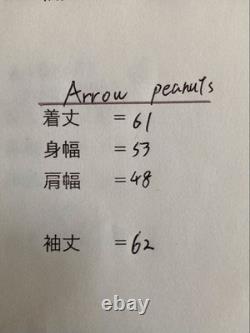 Arrow peanuts
着丈 =61
身幅 =53
肩幅 =48
袖丈 =62
ebay.com